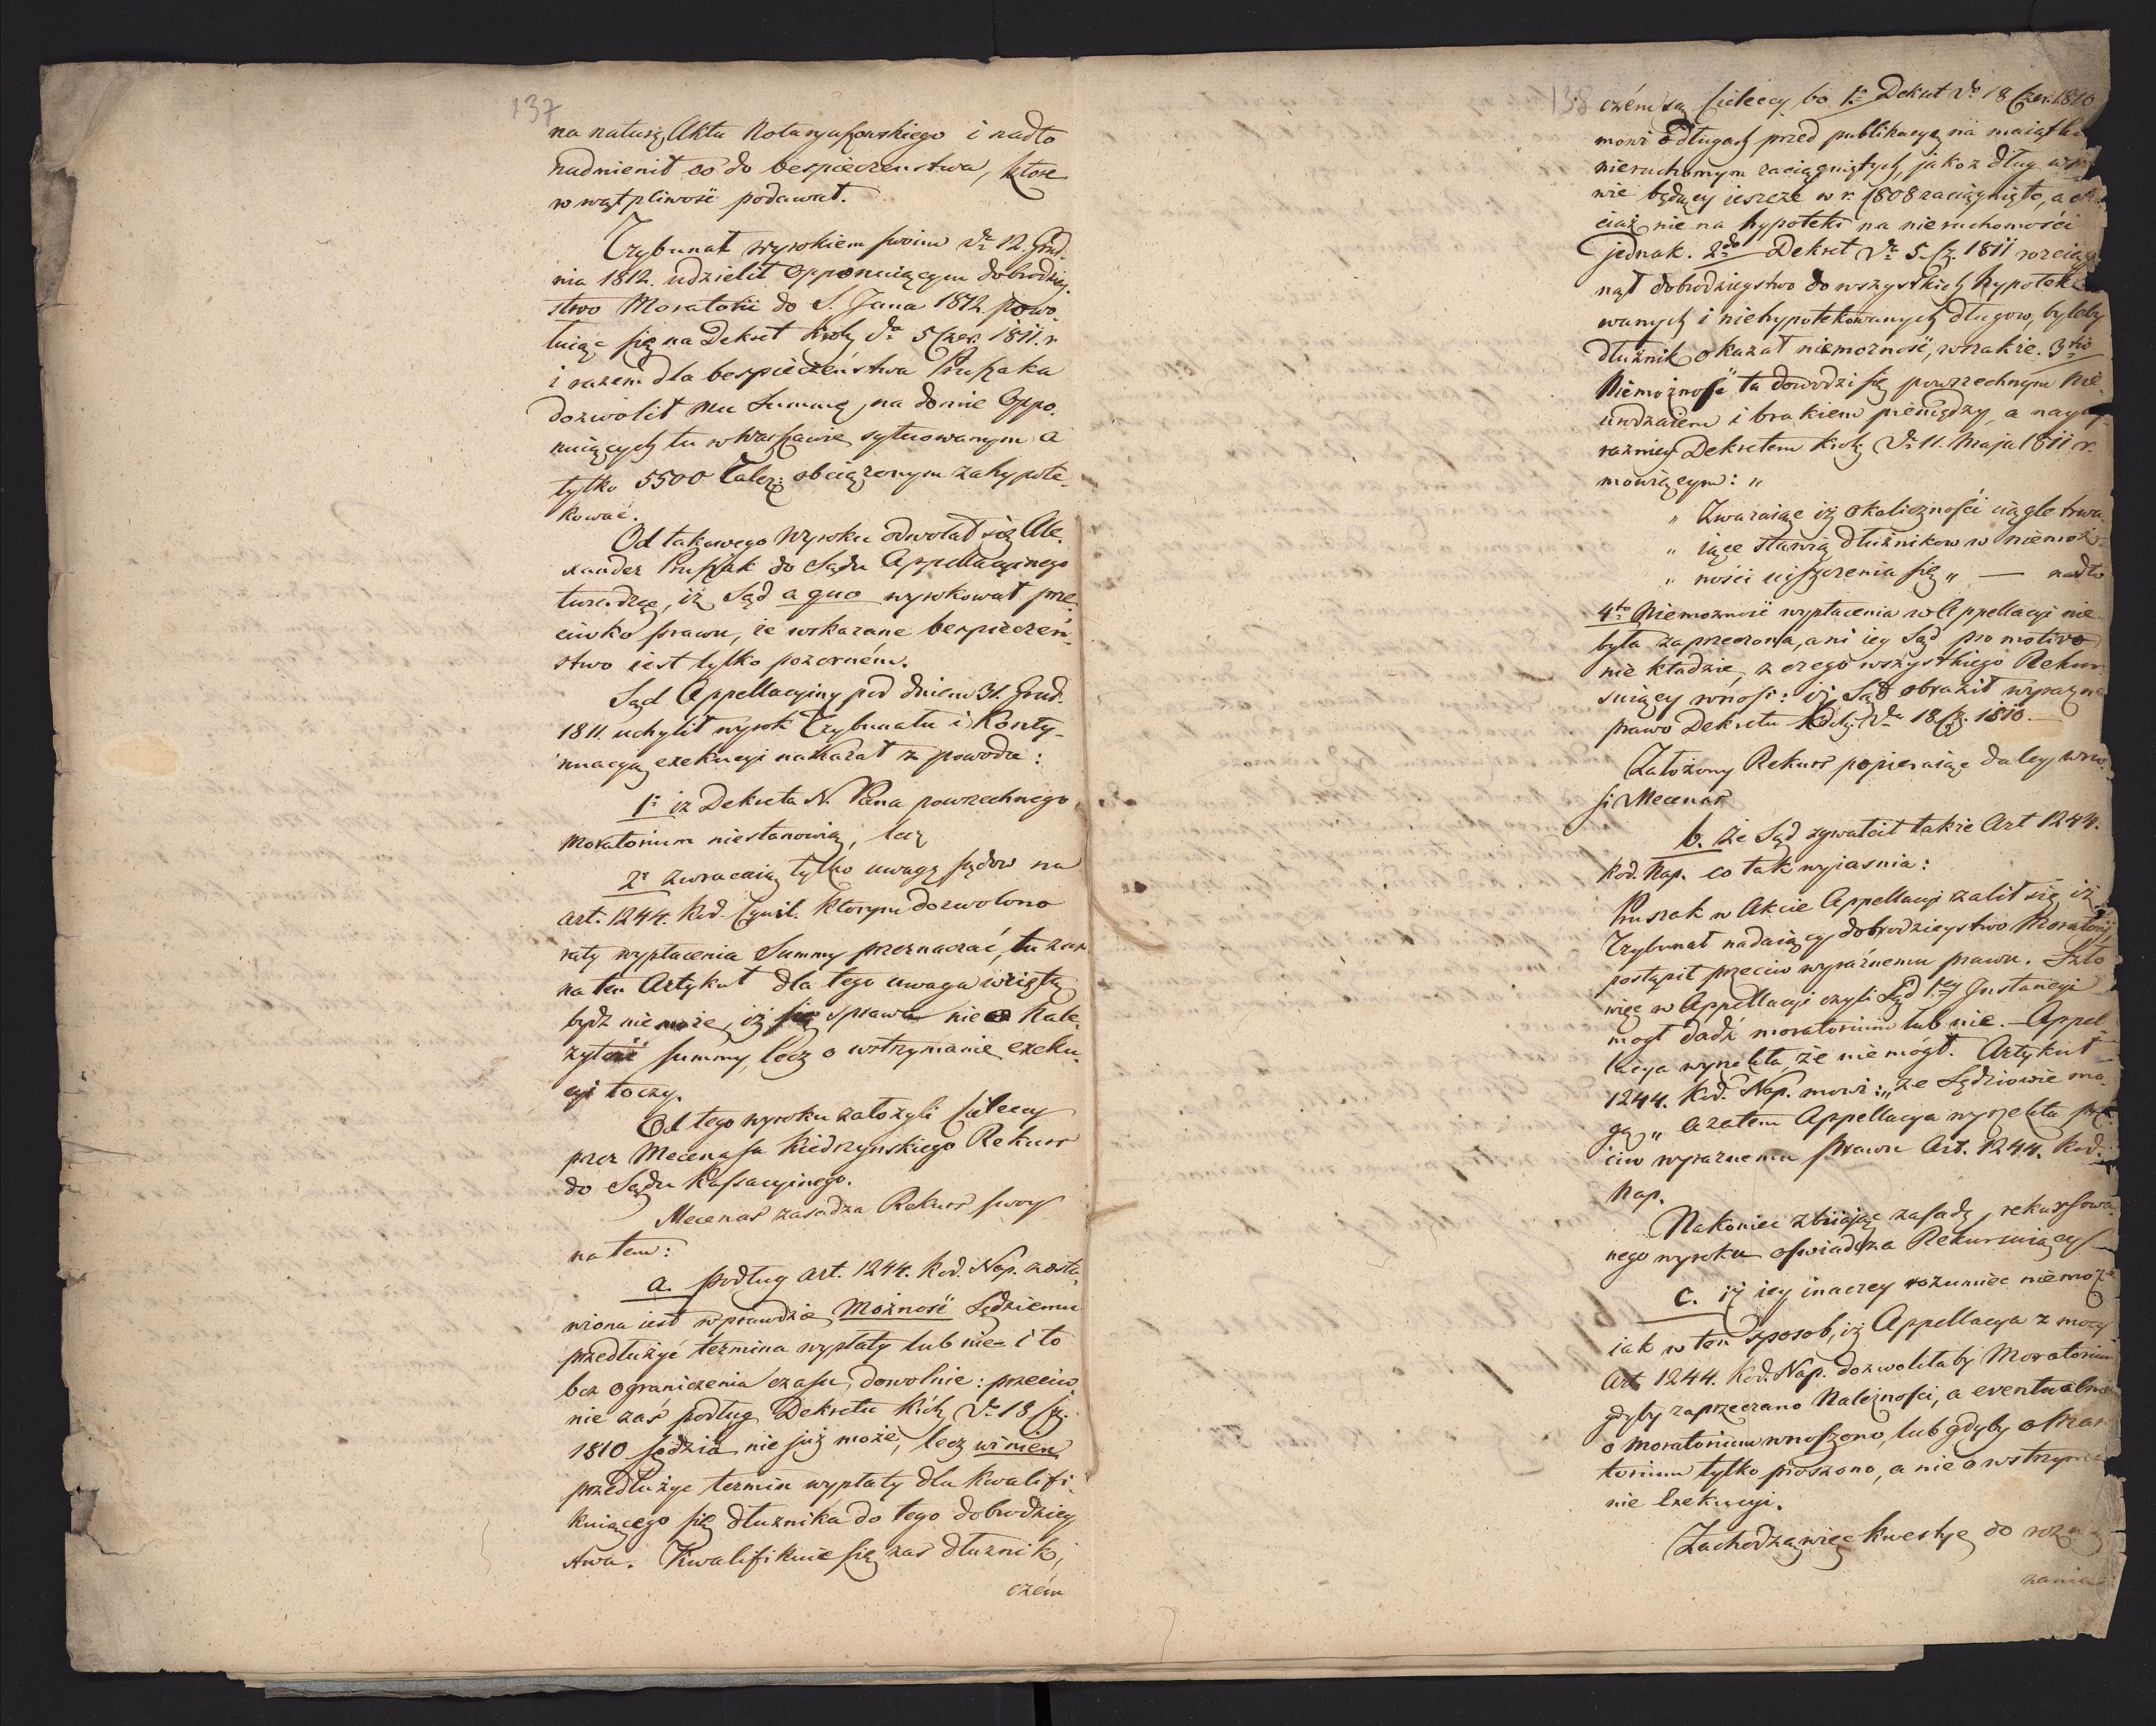 137
na naturę Aktu Notaryuszowskiego i nadto
nadmienił co do bespieczenstwa, ktore
w wątpliwość podawał.
Trybunał wyrokiem swoim de 12. Grud.
nia 1812. udzielił opponuiącym dobrodziey.
stwo Moratorii do S. Jana 1812. powo.
łuiąc się na Dekret Król. de 5 Czer. 1811. r
i razem dla bespieczeństwa Pruszaka
dozwolił mu Summę, na domie Oppo.
nuiących tu w Warszawie sytuowanym a
tylko 5500 Talez: obciążonym zahypote-
kować.
Od takowego Wyroku odwołał się Ale.
xander Pruszak do Sądu Appellacyinego
twierdząc, iż Sąd a quo wyrokował prze.
ciwko prawu, że wskazane bespieczeń.
stwo iest tylko pozorném.
Sąd Appellacyiny pod dniem 31. Grud.
1811. uchylił wyrok Trybunału i Konty-
nuacyą exekucyi nakazał z powodu:
1° iż Dekreta N. Pana powszechnego
Moratorium niestanowią, lecz
2° zwracaią tylko uwagę sądow na
art. 1244. Kod. Cywil. ktorym dozwolono
raty wypłacenia Summy przeznaczać, tu zaś
na ten Artykuł dla tego uwaga wziętą
bydź nie może, iż sprawa nie o Nale.
żytość summy, lecz o wstrzymanie exeku.
cyi toczy.
Od tego wyroku założyli Cieleccy
przez Mecenasa Kiedrzynskiego Rekurs
do Sądu Kassacyinego.
Mecenas zasadza Rekurs swoy
na tem:
a. podług art. 1244. Kod. Nap. zosta.
wiona iest wprawdzie Możność Sędziemu
przedłużyć termina wypłaty lub nie i to
bez ograniczenia czasu, dowolnie: przeciw
nie zaś podług Dekretu Król. de 18 Cz.
1810 sędzia nie już może, lecz winien
przedłużyć termin wypłaty dla kwalifi.
kuiącego się dłużnika do tego dobrodziey
stwa. Kwalifikuie się zaś dłużnik,
czém
138
czém są Cieleccy bo 1° Dekret de 18 Czer. 1810
mowi o długach przed publikacyą na maiątku
nieruchomym zaciągniętych, jakoż dług
nie będący ieszcze w r. 1808 zaciągnięto, a
ciaż nie na hypoteki na nieruchomości
jednak. 2do Dekret de 5. Cz. 1811 rozciąg
nął dobrodzieystwo do wszystkich hypoteko
wanych i niehypotekowanych długow, byleby
dłużnik okazał niemożność, wszakże. 3tio
Niemożność ta dowodzi się powszechnym nie.
urodzaiem i brakiem pieniędzy, a naywy
raźniey Dekretem Król. de 11. Maja 1811 r.
mowiącym: „
„ Zważaiąc iż okoliczności ciągle trwa.
„ iące stawią dłużnikow w niemoż-
„ ności uiszczenia się „ — nadto
4to Niemożność wypłacenia w Appellacyi nie
była zaprzeczona, ani iey Sąd pro motivo
nie kładzie, z czego wszystkiego Rekur
suiący wnosi: iż Sąd obraził wyraźne
prawo Dekretu Król. de 18. Cz. 1810.
Założony Rekurs popieraiąc daley, wno.
si Mecenas
b. że Sąd zgwałcił także Art 1244.
Kod. Nap. co tak wyiasnia:
Pruszak w Akcie Appellacyi żalił się iż
Trybunał nadaiący dobrodzieystwo Moratorij
postąpił przeciw wyraźnemu prawu. Szło
więc w Appellacyi czyli Sąd 1ey Instancyi
mogł dadź moratorium lub nie. — Appel-
lacya wyrzekła, że nie mógł. Artykuł
1244. Kod. Nap. mowi: „że Sędziowie mo.
gą „ a zatem Appellacya wyrzekła prze.
ciw wyraźnemu Prawu Art. 1244. Kod.
Nap.
Nakoniec zbiiając zasady rekursowa.
nego wyroku oświadcza Rekursuiący
c. iż iey inaczey rozumiec niemoż
iak w ten sposob, iż Appellacya z mocy
Art 1244. Kod. Nap. dozwoliłaby Moratorium
gdyby zaprzeczano Należności, a eventualnie
o Moratorium wnoszono, lub gdyby o Mora
torium tylko proszono, a nie o wstrzyma
nie Exekucyi.
Zachodzą więc kwestye do rozwią
zania